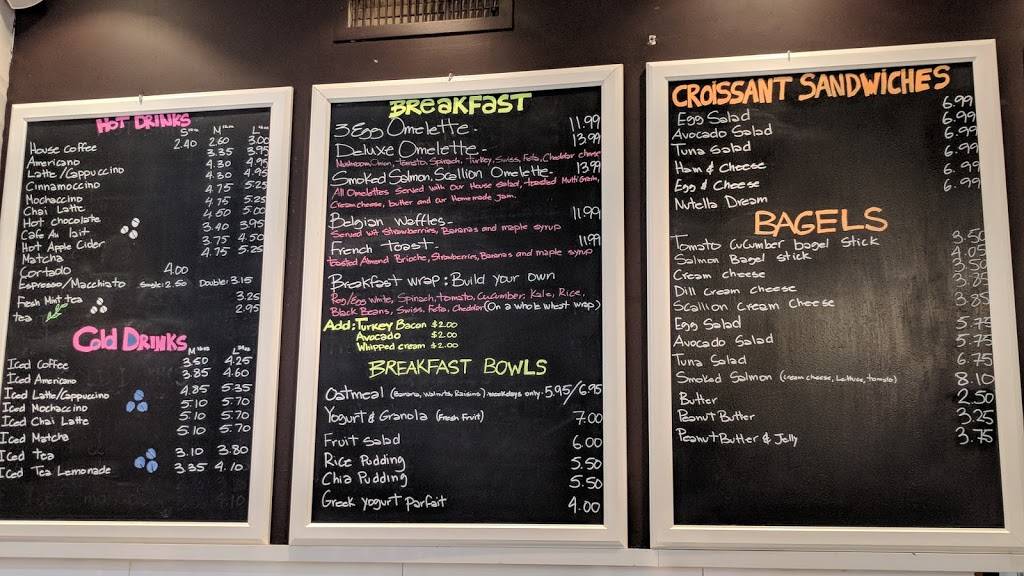 HOT DRINKS
S M L
House coffee 2.40 2.60 3.00
Americano 3.35 3.75
Latte/Cappuccino 4.30 4.95
Cinnamoccino 4.30 4.95
Mochaccino 4.75 5.25
Chai Latte 4.75 5.25
Hot chocolate 4.50 5.00
Café Au lait 3.40 3.95
Hot Apple Cider 3.75 4.50
Matcha 4.75 5.25
Cortado 4.00
Espresso/Macchiato Single: 2.50 Double: 3.15
Fresh Mint tea 3.25
tea 2.95
Cold DRINKS
M L
Iced Coffee 3.50 4.25
Iced Americano 3.85 4.60
Iced Latte/Cappuccino 4.85 5.35
Iced Mochaccino 5.10 5.70
Iced Chai Latte 5.10 5.70
Iced Matcha 5.10 5.70
Iced tea 3.10 3.80
Iced Tea Lemonade 3.35 4.10
BREAKFAST
3 Egg Omelette - 11.99
Deluxe Omelette - 13.99
Mushroom, Onion, Tomato, Spinach, Turkey, Swiss, Feta, Cheddar cheese
Smoked Salmon, Scallion Omelette - 13.99
All Omelettes Served with Our House Salad, toasted Multi Grain,
Cream cheese, butter and our Homemade Jam.
Belgian Waffles - 11.99
Served wit Strawberries, Bananas and maple syrup
French Toast - 11.99
Toasted Almond Brioche, Strawberries, Bananas and maple syrup
Breakfast wrap: Build your own
Egg/Egg white, Spinach, tomato, Cucumber, Kale, Rice,
Black Beans, Swiss, Feta, Cheddar (On a whole wheat wrap)
Add: Turkey Bacon $2.00
Avocado $2.00
Whipped cream $2.00
BREAKFAST BOWLS
Oatmeal (Banana, Walnuts, Raisins) weekdays only - 5.95/6.95
Yogurt & Granola (Fresh Fruit) 7.00
Fruit Salad 6.00
Rice Pudding 5.50
Chia Pudding 5.50
Greek yogurt Parfait 4.00
CROISSANT SANDWICHES
Egg Salad 6.99
Avocado Salad 6.99
Tuna Salad 6.99
Ham & Cheese 6.99
Egg & Cheese 6.99
Nutella Dream
BAGELS
Tomato cucumber bagel stick 3.50
Salmon Bagel stick 4.05
Cream cheese
Dill Cream cheese
Scallion Cream Cheese 3.85
Egg Salad 5.75
Avocado Salad 5.75
Tuna Salad 6.75
Smoked Salmon (cream cheese, Lettuce, tomato) 8.10
Butter 2.50
Peanut Butter 3.25
Peanut Butter & Jelly 3.75